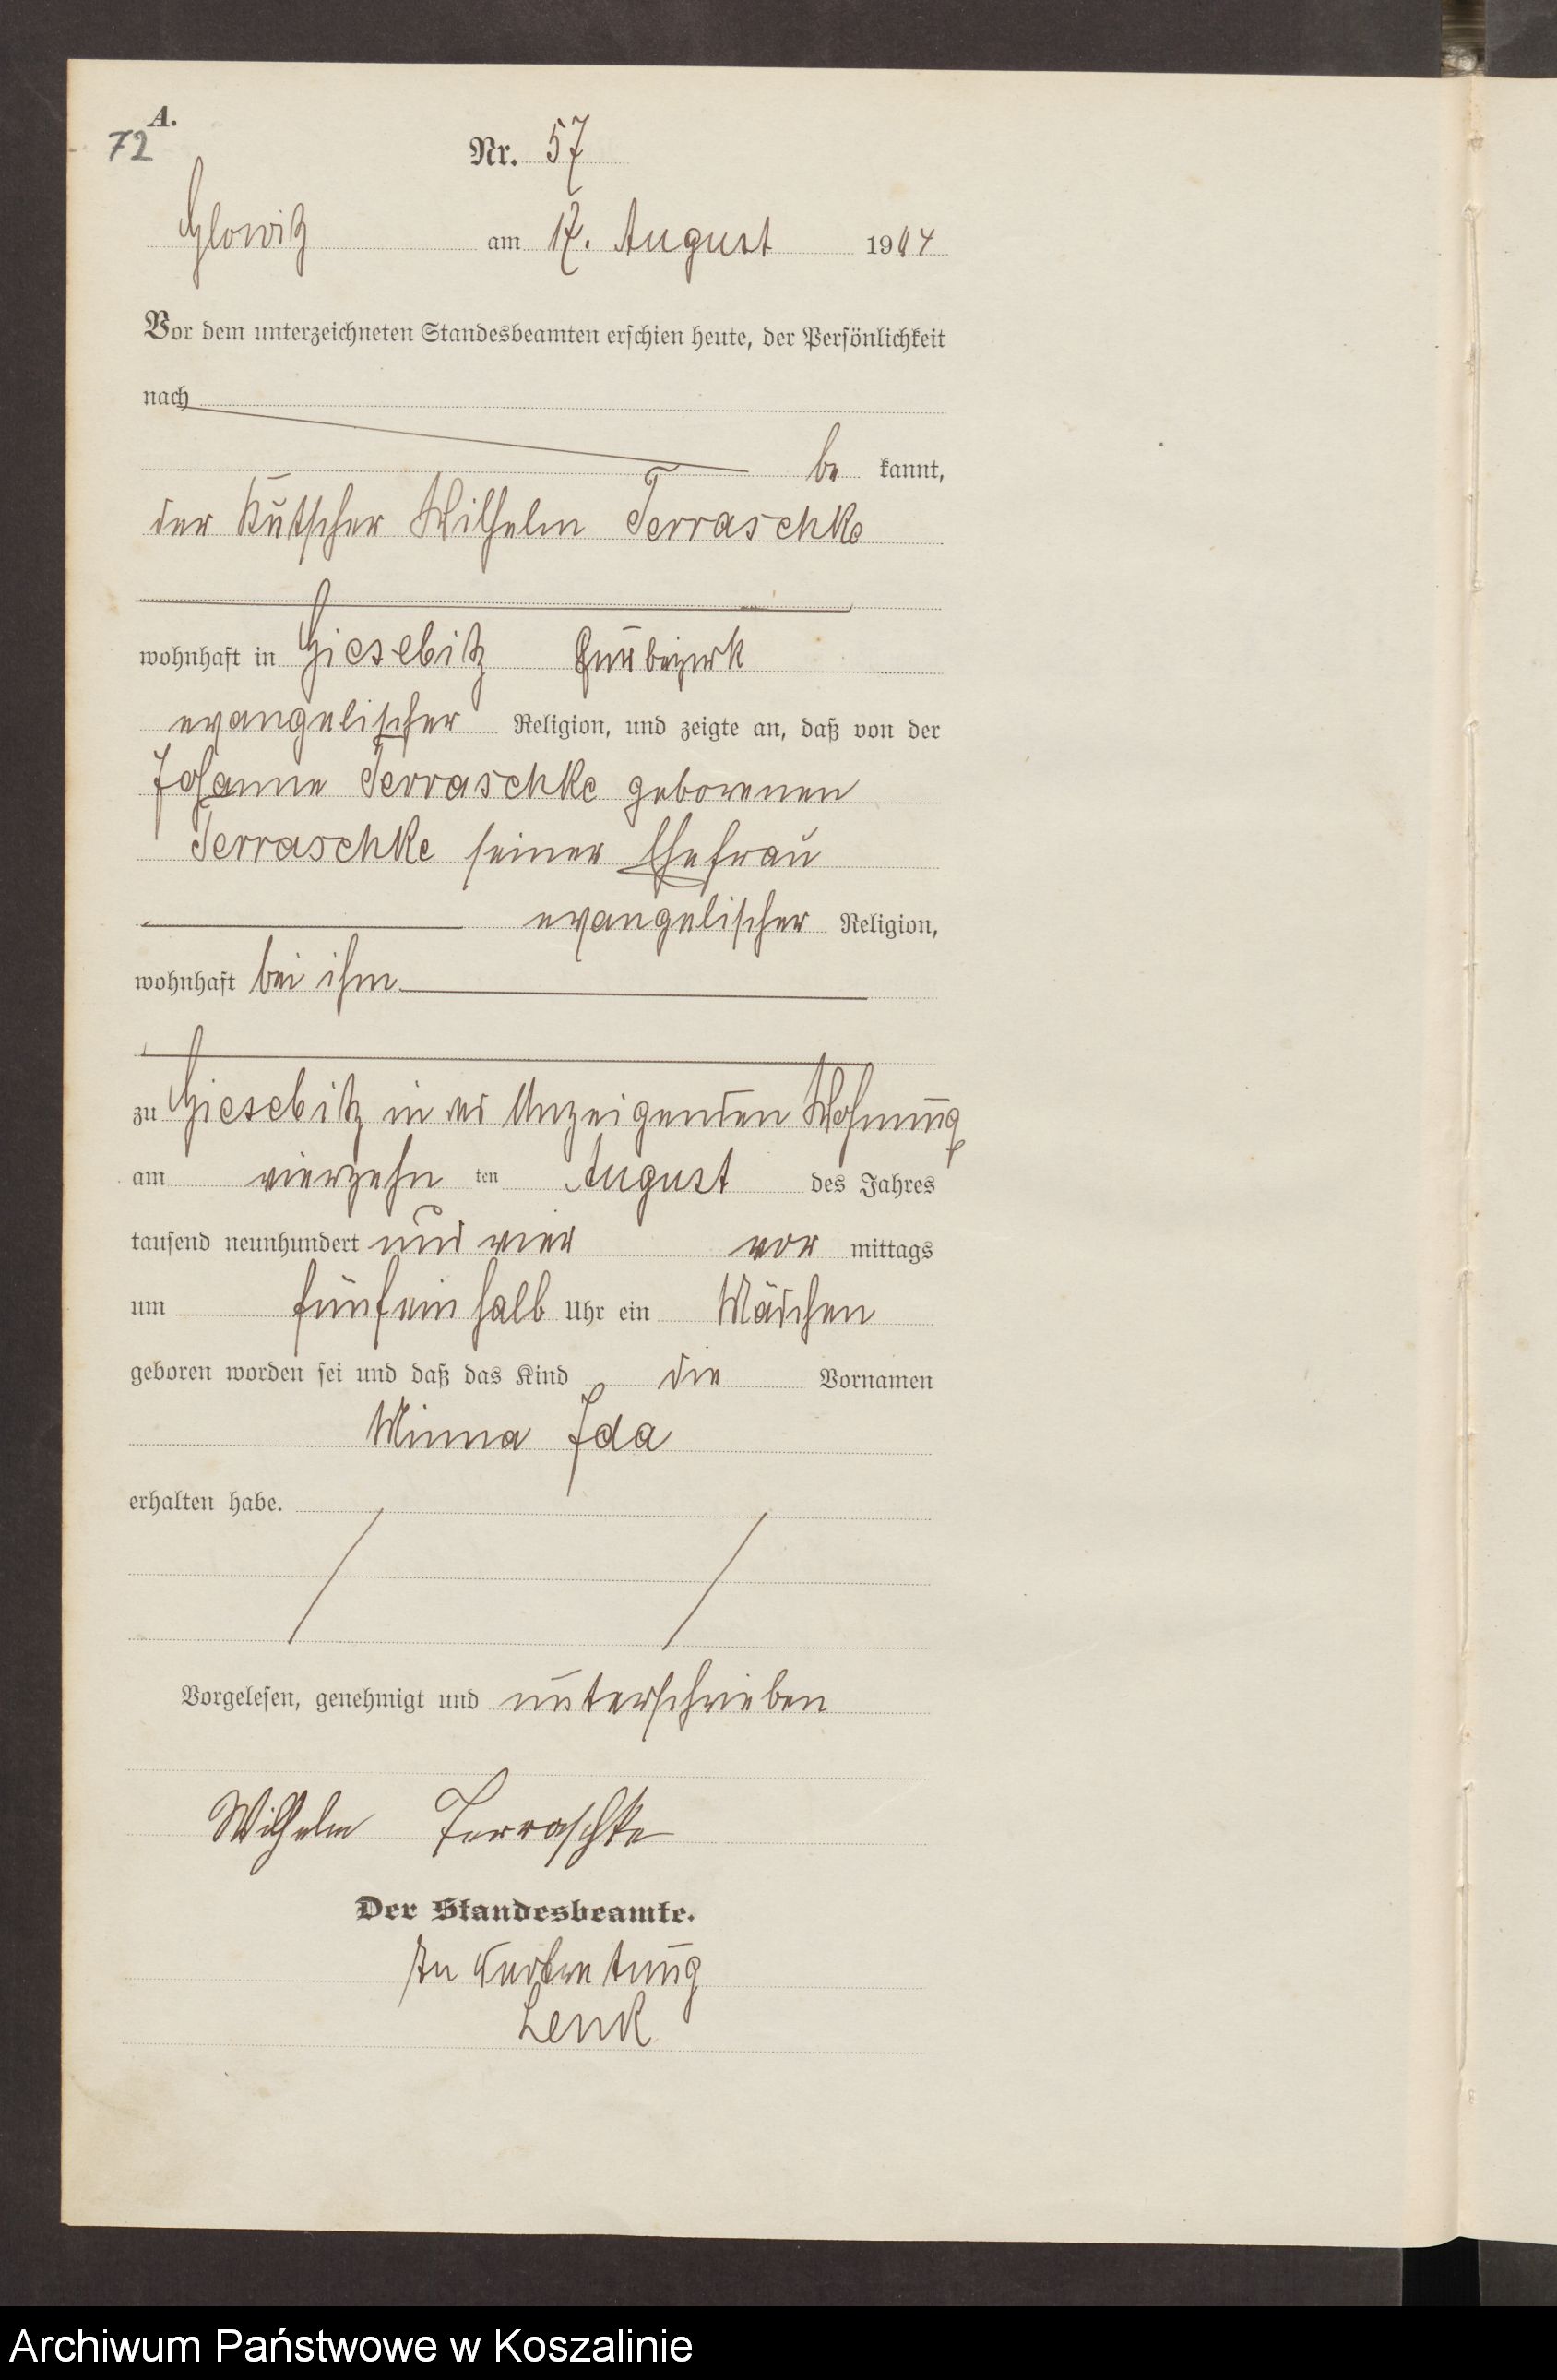 A.
72
Nr. 57
Glowitz am 17. August 1904
Vor dem unterzeichneten Standesbeamten erschien heute, der Persönlichkeit
nach
be kannt,
der Kutscher Wilhelm Terraschke
wohnhaft in Giesebitz
evangelischer Religion, und zeigte an, daß von der
Johanne Terraschke geborenen
Terraschke seiner Ehefrau
evangelischer Religion,
wohnhaft bei ihm
zu Giesebitz in des Anzeigenden Wohnung
am vierzehn ten August des Jahres
tausend neunhundert und vier vor mittags
um fünfeinhalb Uhr ein Mädchen
geboren worden sei und daß das Kind die Vornamen
Minna Ida
erhalten habe.
Vorgelesen, genehmigt und unterschrieben
Wilhelm Terraschke
Der Standesbeamte.
In Vertretung
Lenk
Archiwum Państwowe w Koszalinie